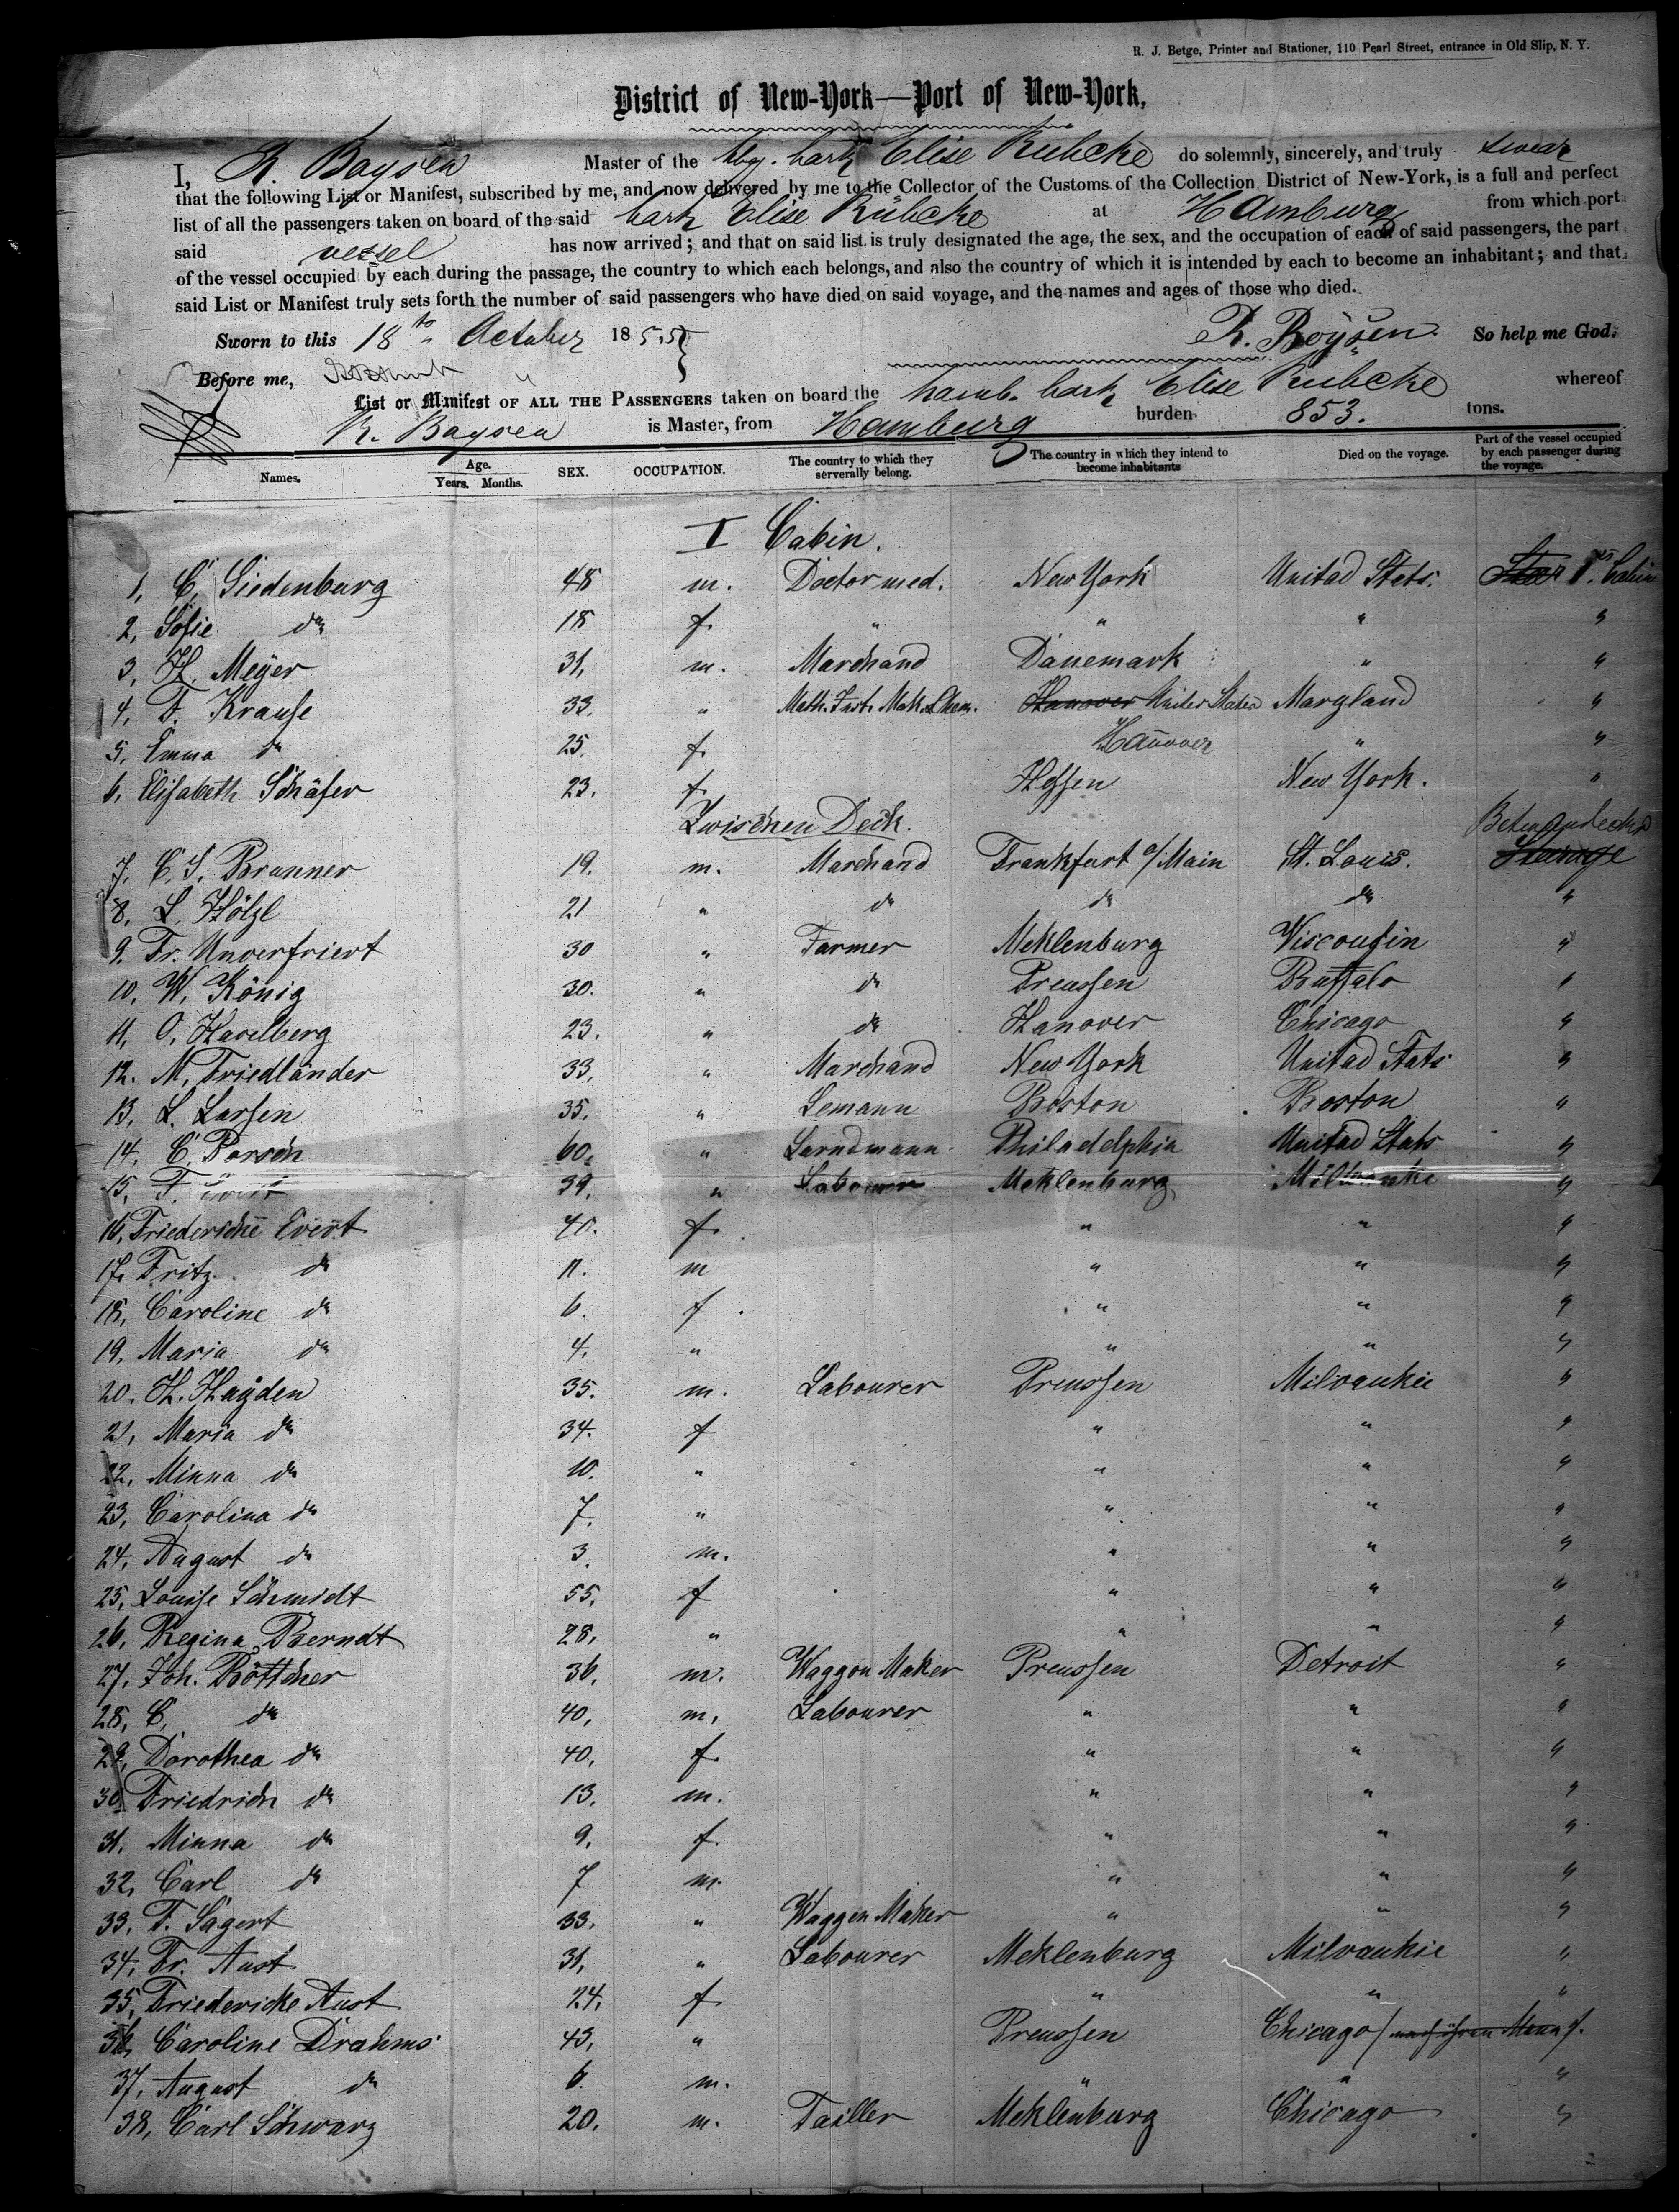 R. J. Betge, Printer and Stationer, 110 Pearl Street, entrance in Old Slip, N. Y.
District of New-York—Port of New-York,
I, R. Boysen Master of the hbg. bark Elise Rübcke do solemnly, sincerely, and truly swear
that the following List or Manifest, subscribed by me, and now delivered by me to the Collector of the Customs of the Collection District of New-York, is a full and perfect
list of all the passengers taken on board of the said bark Elise Rübcke at Hamburg from which port
said vessel has now arrived; and that on said list is truly designated the age, the sex, and the occupation of each of said passengers, the part
of the vessel occupied by each during the passage, the country to which each belongs, and also the country of which it is intended by each to become an inhabitant; and that
said List or Manifest truly sets forth the number of said passengers who have died on said voyage, and the names and ages of those who died.
Sworn to this 18th October 1855 R. Boysen So help me God.
Before me,
List or Manifest OF ALL THE PASSENGERS taken on board the hamb. bark Elise Rubcke whereof
R. Boysen is Master, from Hamburg burden 853. tons.
Names. Age. Years. Months. SEX. OCCUPATION. The country to which they serverally belong. The country in which they intend to become inhabitants Died on the voyage. Part of the vessel occupied by each passenger during the voyage.
I Cabin.
1, C. Siedenburg 48 m. Doctor med. New York Unitad Stats. 1st Cabin
2, Sofie do 18 f. " " " "
3, H. Meyer 31, m. Marchand Dänemark " "
4, F. Krause 33. " Math. Inst. Mak. Hanover United States Maryland "
5, Emma do 25. f. Hanover " "
6, Elisabeth Schäfer 23. f. Hessen New York. "
Zwischen Deck. Between decks
7. C. S. Brunner 19. m. Marchand Frankfurt a/Main St. Louis. Steerage
8, L. Hölzl 21 " do do do "
9. Fr. Unverfriert 30 " Farmer Meklenburg Visconsin "
10, W. König 30. " do Preussen Buffalo "
11, O. Havelberg 23. " do Hanover Chicago "
12. M. Friedländer 33, " Marchand New York Unitad Stats "
13, L. Larsen 35. " Semann Boston Boston "
14, C. Porsch 60, " Landmann Philadelphia Unitad Stats "
15, F. Evert 39, " Labourer Meklenburg Milwaukie "
16, Friedericke Evert 40. f. " " "
17, Fritz do 11. m " " "
18, Caroline do 6. f " " "
19, Maria do 4. " " " "
20. H. Hayden 35. m. Labourer Preussen Milvaukie "
21, Maria do 34. f " " "
22, Minna do 10. " " " "
23, Carolina do 7. " " " "
24, August do 3. m. " " "
25, Louise Schmidt 55, f " " "
26, Regina Berndt 28, " " " "
27, Joh. Böttcher 36, m. Waggon Maker Preussen Detroit "
28, C. do 40, m, Labourer " " "
29, Dorothea do 40, f. " " "
30, Friedrich do 13. m. " " "
31. Minna do 9. f. " " "
32, Carl do 7 m. " " "
33, F. Sagert 33, " Waggen Maker " " "
34, Fr. Aust 31, " Labourer Meklenburg Milvaukie "
35, Friedericke Aust 24, f " " "
36, Caroline Drahms 43, " Preussen Chicago / nach ihren Mann /.
37, August do 6. m. " " "
38, Carl Schwarz 20, m. Tailler Meklenburg Chicago "